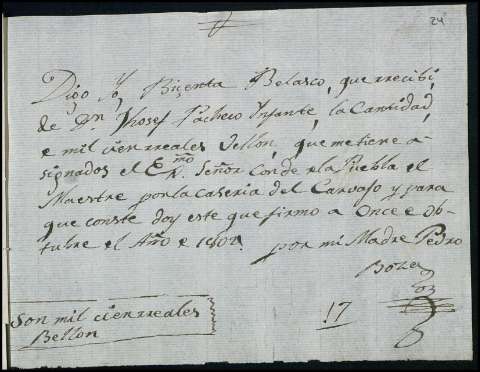 24
Digo Yo, Biçenta Belasco, que rrecibi
de Dn. Jhosef Pacheco Infante, la Cantidad
e mil cien rreales Vellon, que me tiene a
signados el Exmo. Señor Conde e la Puebla el
Maestre por la Caseria del Carvajo y para
que conste doy este que firmo a Once e Ob-
tubre el Año e 1802.
por mi Madre Pedro
Son mil cien rreales
Bellon
17